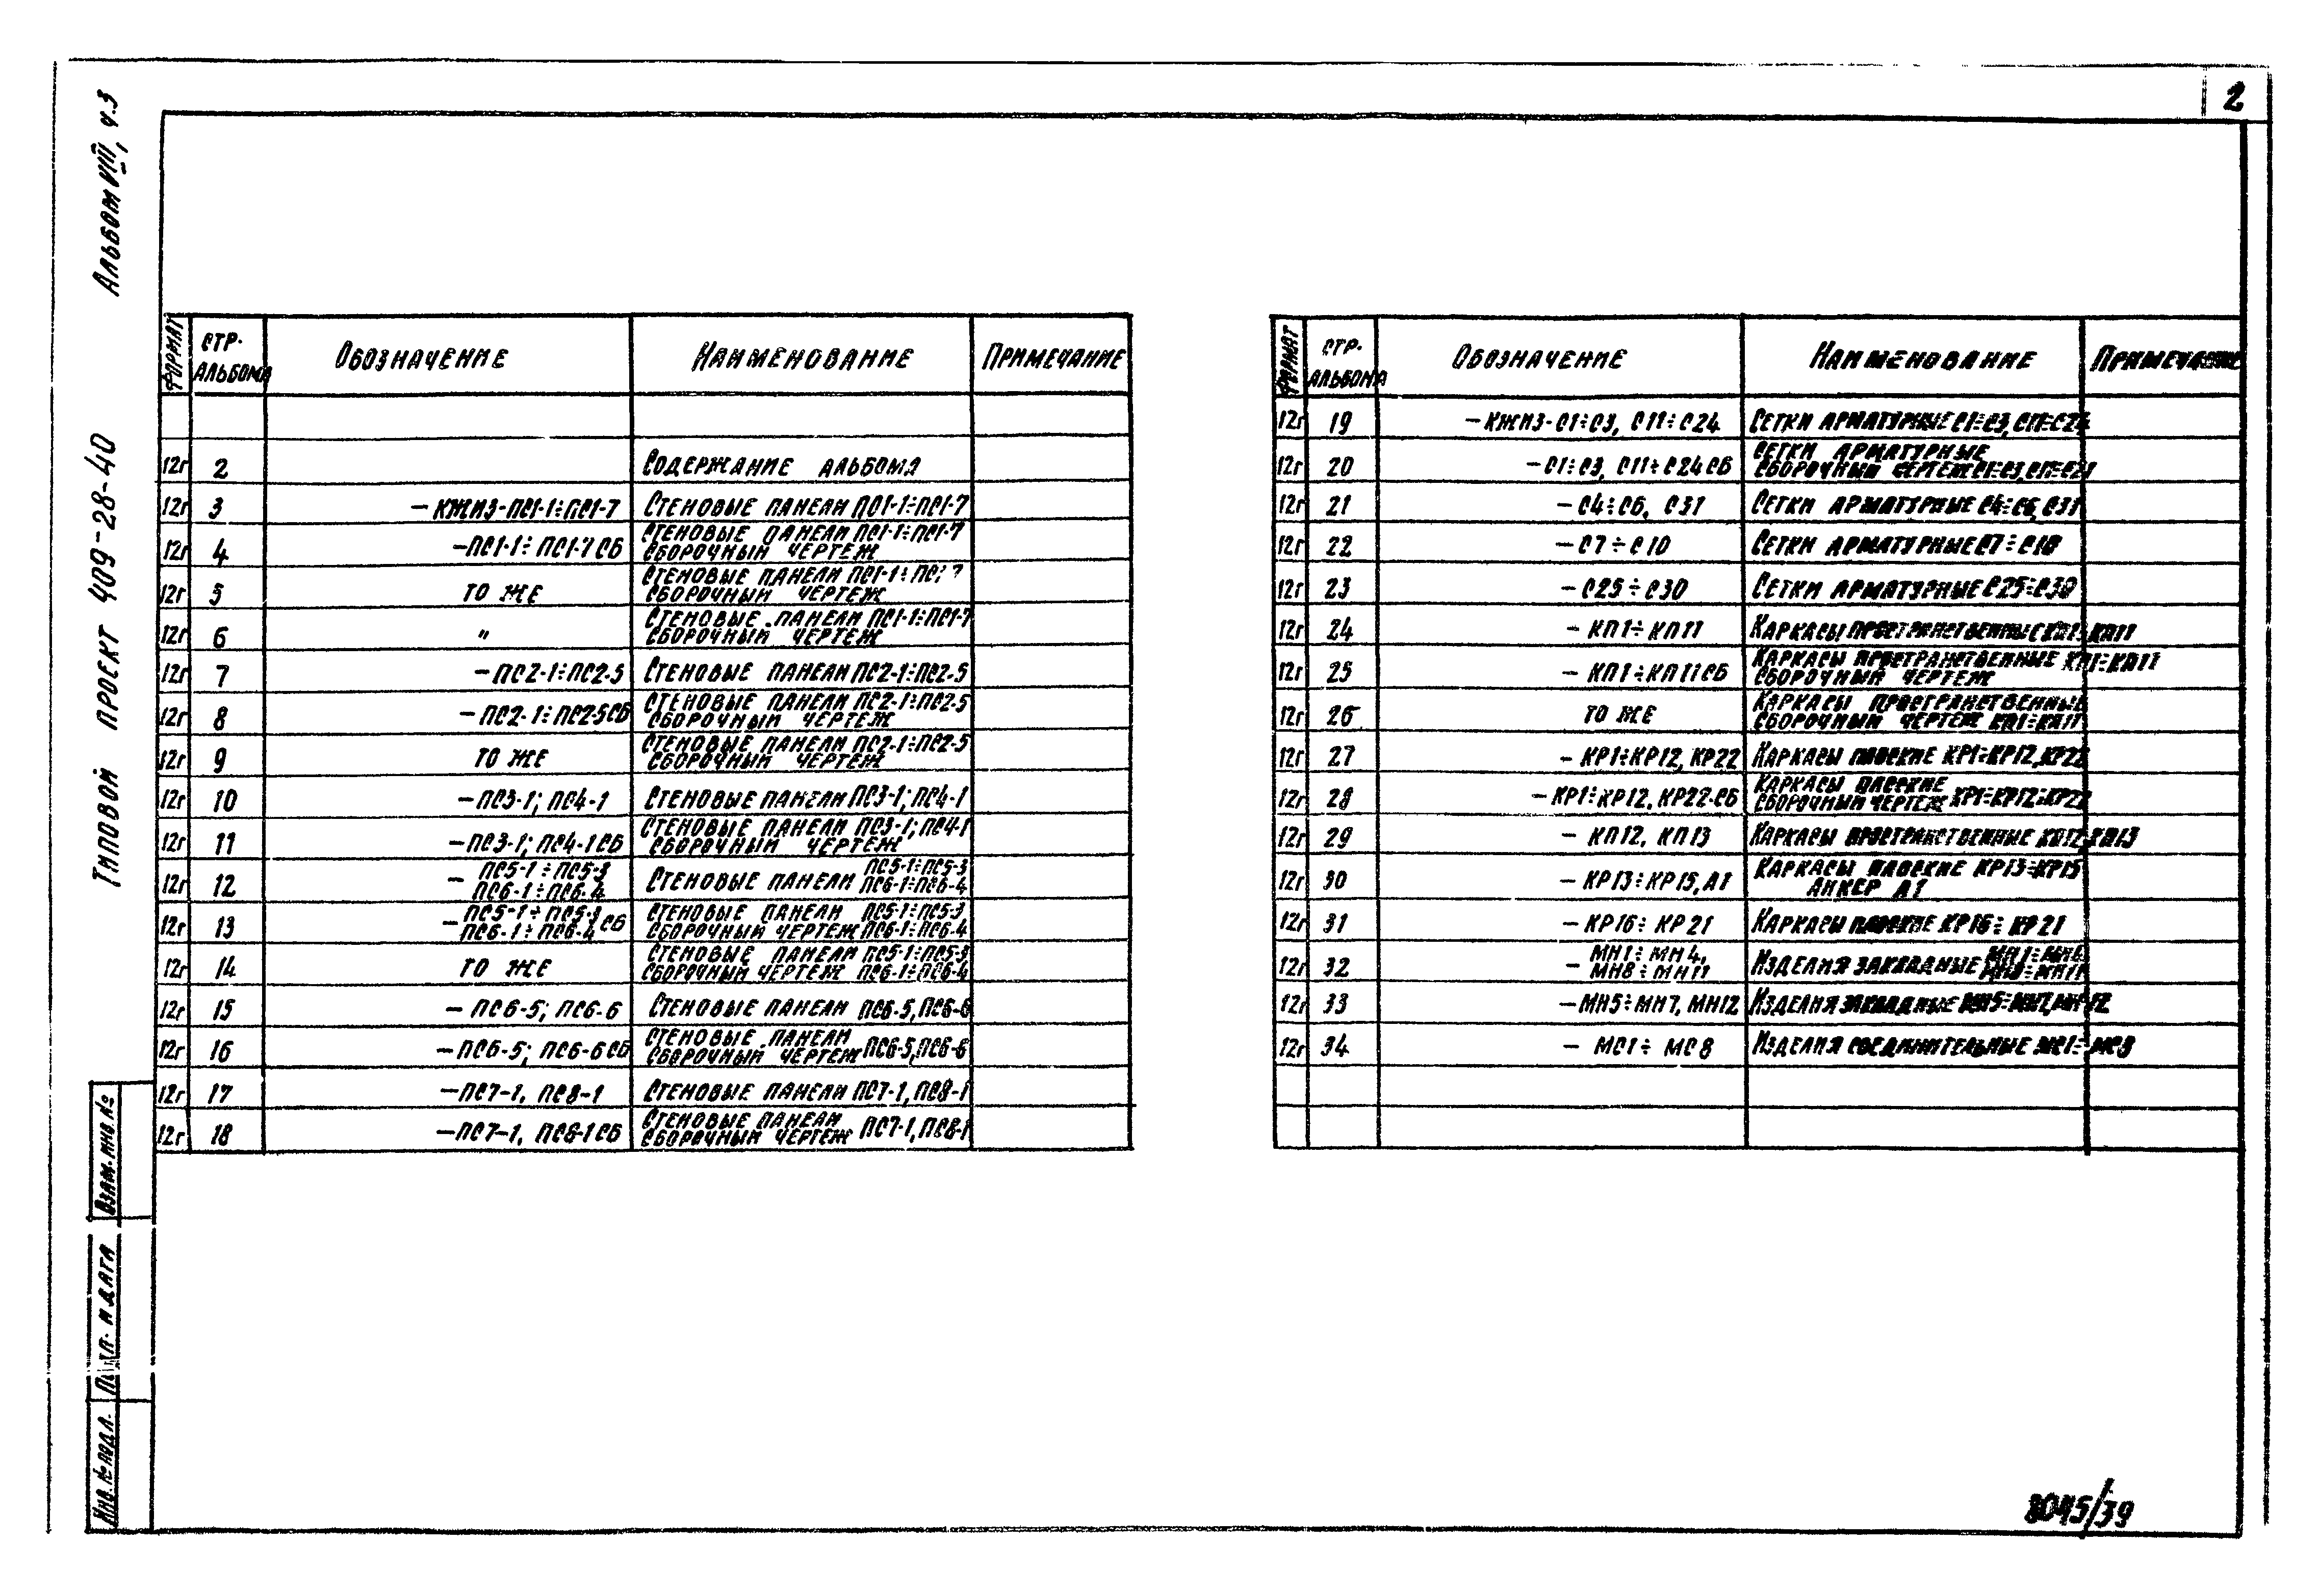 2
Альбом VIII, ч.3
Типовой проект 409-28-40
Формат Стр. альбома Обозначение Наименование Примечание
12г 2 Содержание альбома
12г 3 -КЖИЗ-ПС1-1÷ПС1-7 Стеновые панели ПС1-1÷ПС1-7
12г 4 -ПС1-1÷ПС1-7СБ Стеновые панели ПС1-1÷ПС1-7
Сборочный чертеж
12г 5 То же Стеновые панели ПС1-1÷ПС1-7
Сборочный чертеж
12г 6 " Стеновые панели ПС1-1÷ПС1-7
Сборочный чертеж
12г 7 -ПС2-1÷ПС2-5 Стеновые панели ПС2-1÷ПС2-5
12г 8 -ПС2-1÷ПС2-5СБ Стеновые панели ПС2-1÷ПС2-5
Сборочный чертеж
12г 9 То же Стеновые панели ПС2-1÷ПС2-5
Сборочный чертеж
12г 10 -ПС3-1; ПС4-1 Стеновые панели ПС3-1; ПС4-1
12г 11 -ПС3-1; ПС4-1СБ Стеновые панели ПС3-1; ПС4-1
Сборочный чертеж
12г 12 - ПС5-1÷ПС5-3 ПС6-1÷ПС6-4 Стеновые панели ПС5-1÷ПС5-3 ПС6-1÷ПС6-4
12г 13 - ПС5-1÷ПС5-3 ПС6-1÷ПС6-4 СБ Стеновые панели ПС5-1÷ПС5-3,
Сборочный чертеж ПС6-1÷ПС6-4
12г 14 То же Стеновые панели ПС5-1÷ПС5-3
Сборочный чертеж ПС6-1÷ПС6-4
12г 15 - ПС6-5; ПС6-6 Стеновые панели ПС6-5, ПС6-6
12г 16 -ПС6-5; ПС6-6СБ Стеновые панели
Сборочный чертеж ПС6-5, ПС6-6
12г 17 -ПС7-1, ПС8-1 Стеновые панели ПС7-1, ПС8-1
12г 18 -ПС7-1, ПС8-1СБ Стеновые панели
Сборочный чертеж ПС7-1, ПС8-1
Формат Стр. альбома Обозначение Наименование Примечание
12г 19 -КЖИЗ-С1÷С3, С11÷С24 Сетки арматурные С1÷С3, С11÷С24
12г 20 -С1÷С3, С11÷С24СБ Сетки арматурные
Сборочный чертеж С1÷С3, С11÷С24
12г 21 -С4÷С6, С31 Сетки арматурные С4÷С6, С31
12г 22 -С7÷С10 Сетки арматурные С7÷С10
12г 23 -С25÷С30 Сетки арматурные С25÷С30
12г 24 - КП1÷КП11 Каркасы пространственные КП1÷КП11
12г 25 - КП1÷КП11СБ Каркасы пространственные КП1÷КП11
Сборочный чертеж
12г 26 То же Каркасы пространственные
Сборочный чертеж КП1÷КП11
12г 27 - КР1÷КР12, КР22 Каркасы плоские КР1÷КР12, КР22
12г 28 -КР1÷КР12, КР22-СБ Каркасы плоские
Сборочный чертеж КР1÷КР12; КР22
12г 29 - КП12, КП13 Каркасы пространственные КП12, КП13
12г 30 - КР13÷КР15, А1 Каркасы плоские КР13÷КР15
Анкер А1
12г 31 - КР16÷КР21 Каркасы плоские КР16÷КР21
12г 32 - МН1÷МН4, МН8÷МН11 Изделия закладные МН1÷МН4 МН8÷МН11
12г 33 -МН5÷МН7, МН12 Изделия закладные МН5÷МН7, МН12
12г 34 - МС1÷МС8 Изделия соединительные МС1÷МС8
Взам. инв. №
и дата
Инв. № подл.
8045/39